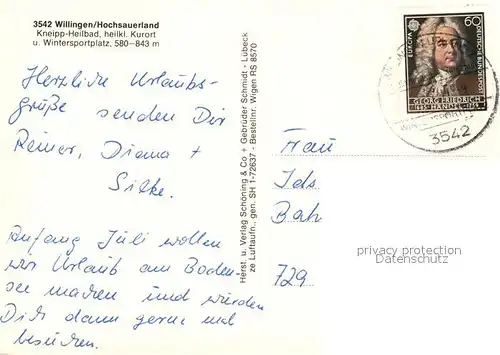 3542 Willingen/Hochsauerland
Kneipp-Heilbad, heilkl. Kurort
u. Wintersportplatz, 580–843 m
Herzliche Urlaubs-
grüße senden Dir
Reiner, Diana +
Silke.
Anfang Juli wollen
wir Urlaub am Boden-
see machen und würden
Dich dann gerne mal
besuchen.
Herst. u. Verlag Schöning & Co + Gebrüder Schmidt - Lübeck
ze Luftaufn., gen. SH 1-72637 - Bestellnr. Wigen RS 8570
EUROPA
60
DEUTSCHE BUNDESPOST
GEORG FRIEDRICH
HÄNDEL
3542
Frau
Ids
Bah
729
privacy protection
Datenschutz